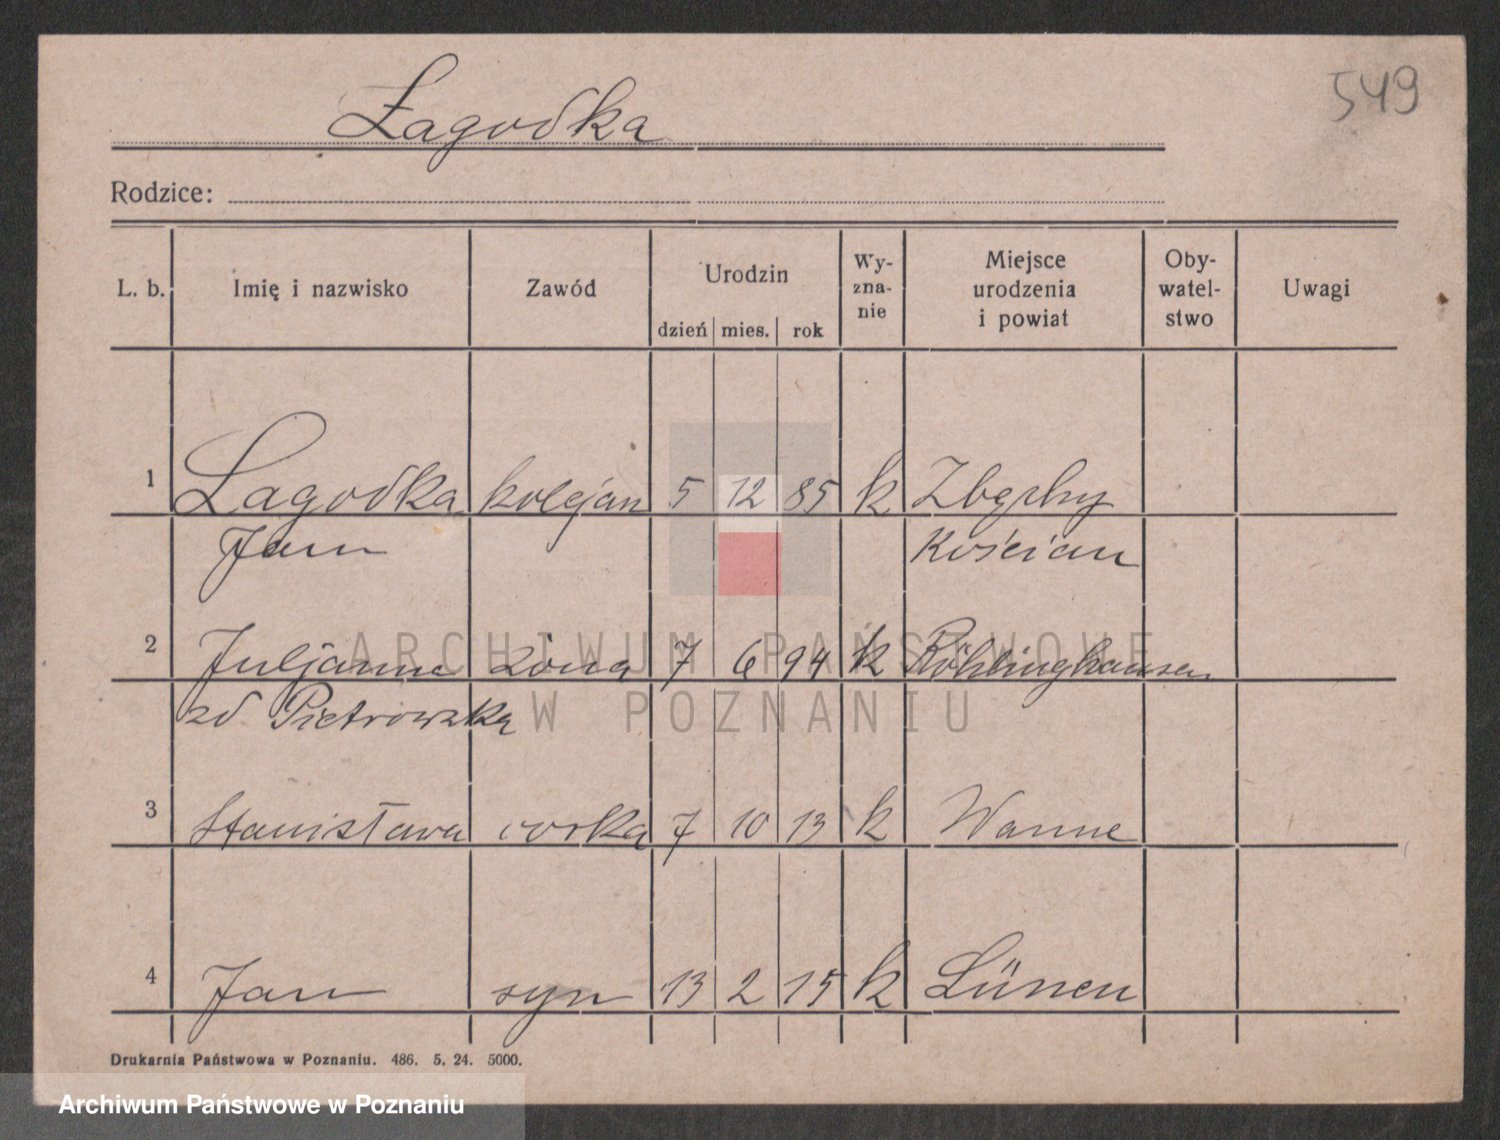 549
Łagodka
Rodzice:
L. b. Imię i nazwisko Zawód Urodzin dzień mies. rok Wy-zna-nie Miejsce urodzenia i powiat Oby-watel-stwo Uwagi
1 Łagodka kolejan 5 12 85 k Zbęchy
Jan Kościan
2 Juljanna żona 7 6 94 k Röhlinghausen
zd Pietrowska
3 Stanisława córka 7 10 13 k Wanne
4 Jan syn 13 2 15 k Lünen
Drukarnia Państwowa w Poznaniu. 486. 5. 24. 5000.
ARCHIWUM PAŃSTWOWE
W POZNANIU
Archiwum Państwowe w Poznaniu